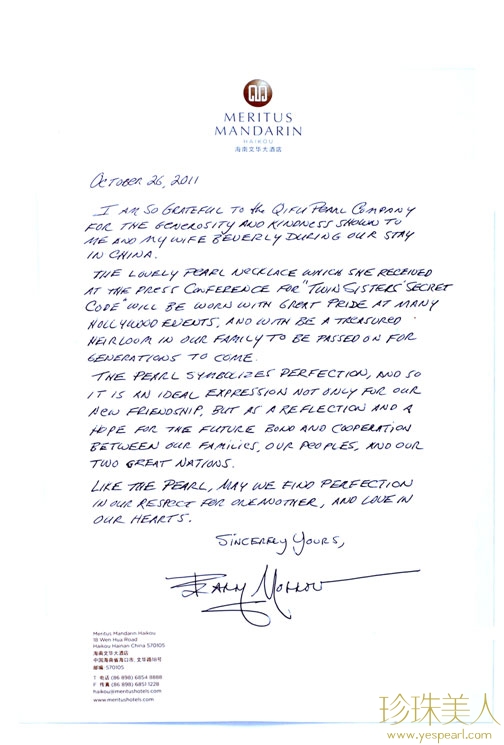 MERITUS
MANDARIN
HAIKOU
海南文华大酒店
OCTOBER 26, 2011
I AM SO GRATEFUL TO THE QIFU PEARL COMPANY
FOR THE GENEROSITY AND KINDNESS SHOWN TO
ME AND MY WIFE BEVERLY DURING OUR STAY
IN CHINA.
THE LOVELY PEARL NECKLACE WHICH SHE RECEIVED
AT THE PRESS CONFERENCE FOR "TWIN SISTERS' SECRET
CODE" WILL BE WORN WITH GREAT PRIDE AT MANY
HOLLYWOOD EVENTS, AND WITH BE A TREASURED
HEIRLOOM IN OUR FAMILY TO BE PASSED ON FOR
GENERATIONS TO COME.
THE PEARL SYMBOLIZES PERFECTION, AND SO
IT IS AN IDEAL EXPRESSION NOT ONLY FOR OUR
NEW FRIENDSHIP, BUT AS A REFLECTION AND A
HOPE FOR THE FUTURE BOND AND COOPERATION
BETWEEN OUR FAMILIES, OUR PEOPLES, AND OUR
TWO GREAT NATIONS.
LIKE THE PEARL, MAY WE FIND PERFECTION
IN OUR RESPECT FOR ONE ANOTHER, AND LOVE IN
OUR HEARTS.
SINCERELY YOURS,
Meritus Mandarin Haikou
18 Wen Hua Road
Haikou Hainan China 570105
海南文华大酒店
中国海南省海口市 文华路18号
邮编 570105
T 电话 (86 898) 6854 8888
F 传真 (86 898) 6851 1228
haikou@meritushotels.com
www.meritushotels.com
珍珠美人
www.yespearl.com